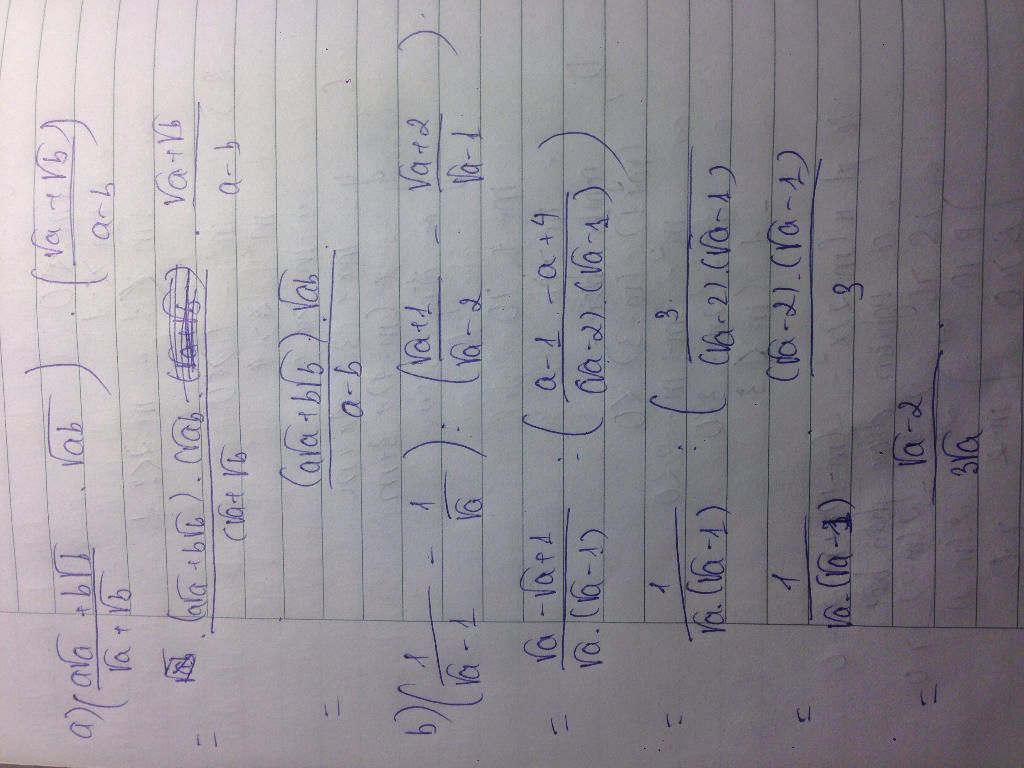 a) ( (a√a + b√b)/(√a + √b) . √ab ) . ( (√a + √b)/(a - b) )
= ((a√a + b√b) . (√ab)/(√a + √b) . (√a + √b)/(a - b)
= ((a√a + b√b) . √ab)/(a - b)
b) ( 1/(√a - 1) - 1/√a ) : ( (√a + 1)/(√a - 2) - (√a + 2)/(√a - 1) ).
= (√a - √a + 1)/(√a . (√a - 1)) : ( (a - 1 - a + 4)/((√a - 2) . (√a - 1)) )
= 1/(√a . (√a - 1)) : ( 3/((√a - 2) . (√a - 1))
= 1/(√a . (√a - 1)) . ((√a - 2) . (√a - 1))/3
= (√a - 2)/(3√a) .